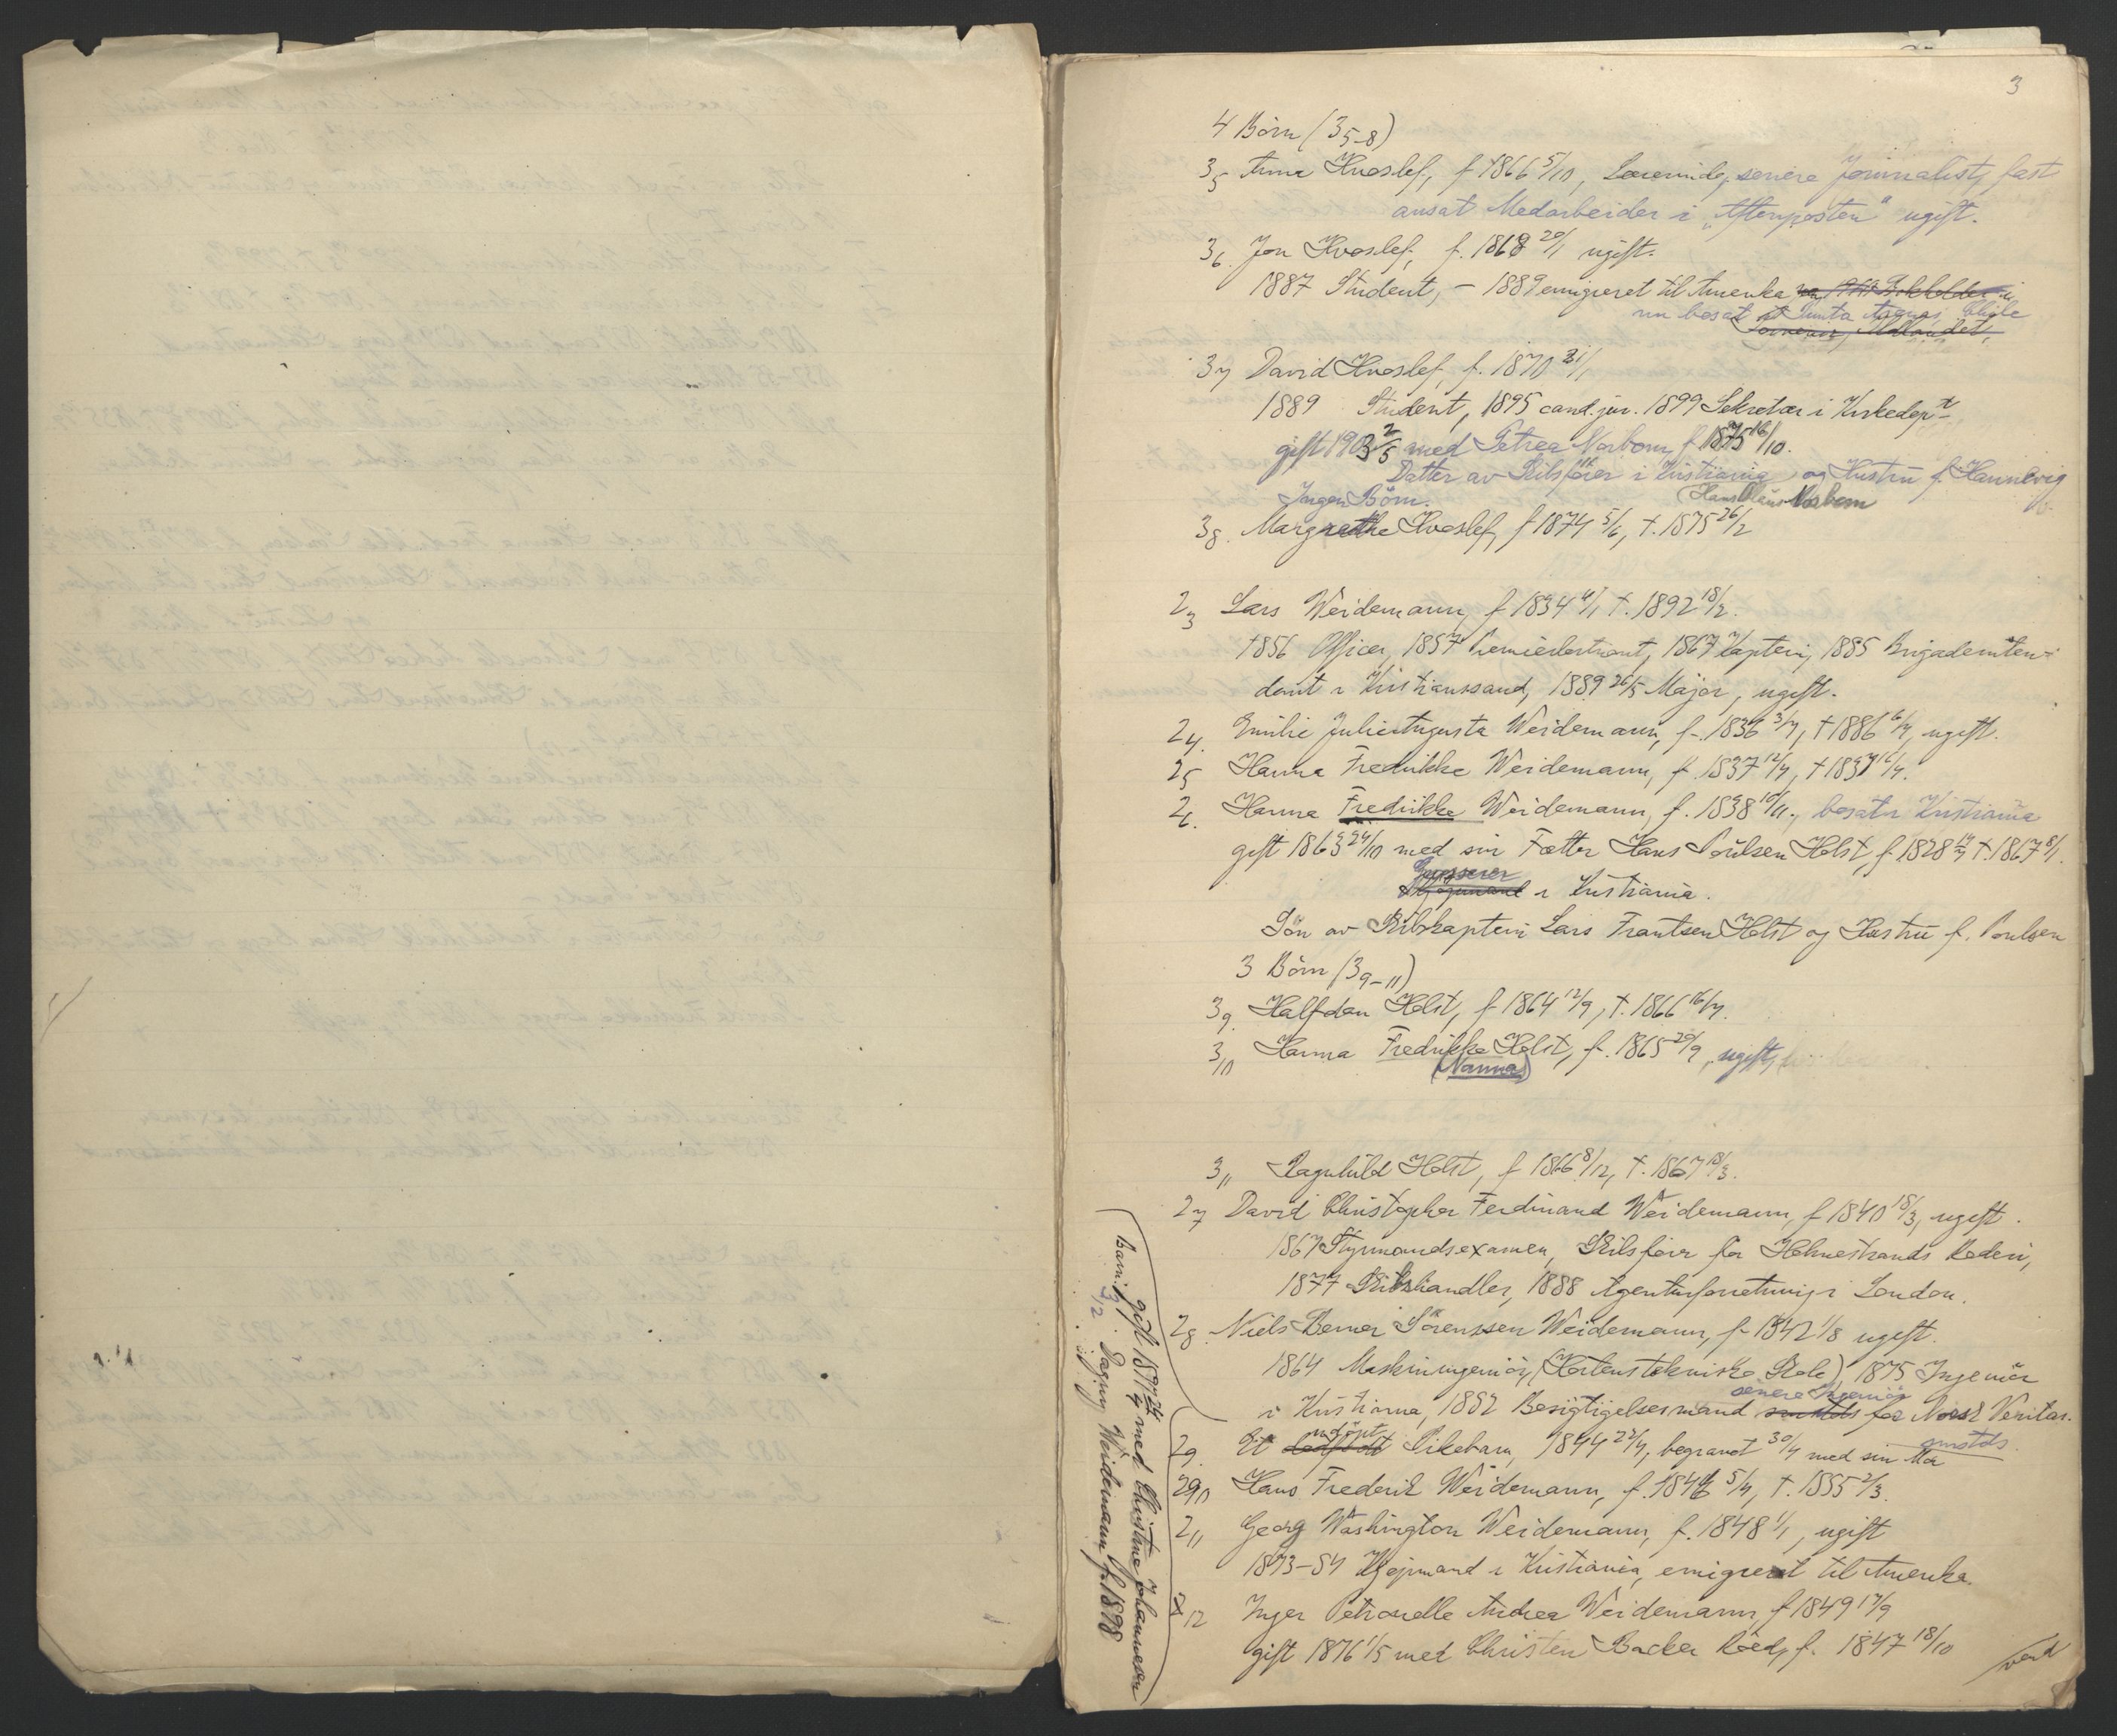 3
4 Börn (3 5-8)
3 5 Anna Hvoslef, f 1866 5/10, Lærerinde, senere Journalist, fast
ansat Medarbeider i "Aftenposten" ugift.
3 6. Jon Hvoslef, f. 1868 20/1 ugift.
1887 Student, – 1889 emigreret til Amerika
nu bosat i Punta Arenas, Chile
3 7 David Hvoslef, f. 1870 31/1
1889 Student, 1895 cand. jur. 1899 Sekretær i Kirkedept
gift 1903 2/5 med Petrea Norbom, f 1875 16/10.
Datter av Skibsfører i Kristiania og Hustru f. Hannevig
Ingen Börn. (Hans Olaus Norbom
3 8. Margrethe Hvoslef, f 1874 5/6, †. 1875 26/2
2 3 Lars Weidemann, f 1834 4/1 †. 1892 18/2.
1856 Officer, 1857 Premierløitnant, 1867 Kaptein, 1885 Brigadeinten-
dant i Kristianssand, 1889 26/5 Major, ugift.
2 4. Emilie Julie Augusta Weidemann, f. 1836 3/7, † 1886 6/7, ugift.
2 5 Hanna Fredrikke Weidemann, f. 1837 12/7, † 1837 16/7.
2 6. Hanna Fredrikke Weidemann, f. 1838 10/11., bosat i Kristiania
gift 1863 24/10 med sin Fætter Hans Poulsen Holst, f 1828 14/7 †. 1867 8/1.
Grosserer
Kjøpmand i Kristiania.
Sön av Skibskaptein Lars Frantsen Holst og Hustru f. Poulsen
3 Börn (3 9-11)
3 9. Halfdan Holst, f 1864 12/9, †. 1866 16/7.
3 10 Hanna Fredrikke Holst, f. 1865 20/9, ugift,
(Nanna)
3 11 Ragnhild Holst, f 1866 8/12, †. 1867 18/3.
2 7 David Christopher Ferdinand Weidemann, f 1840 18/3, ugift.
1867 Styrmandsexamen, Skibsfører for Holmestrands Rederi,
1877 Skibshandler, 1888 Agenturforretning i London.
2 8 Niels Berner Sörenssen Weidemann, f. 1842 1/8 ugift.
1864 Maskiningeniör, (Hortens tekniske Skole), 1875 Ingeniör
senere Ingeniör
i Kristiania, 1882 Besigtigelsesmand for Norsk Veritas.
smstds
udöpt
2 9. Et Pikebarn, 1844 22/4, begravet 30/4 med sin Mor
2 10 Hans Frederik Weidemann, f. 1846 5/4, †. 1855 2/3.
2 11 Georg Washington Weidemann, f. 1848 1/1, ugift
1873–84 Kjøpmand i Kristiania, emigreret til Amerika.
2 12 Inger Petronelle Andrea Weidemann, f 1849 17/9
gift 1876 1/5 med Christen Backer Röed, f. 1847 18/10
vend
gift 1897 24/4 med Christine Johannesen
Barn: 3 12. Dagny Weidemann f. 1898